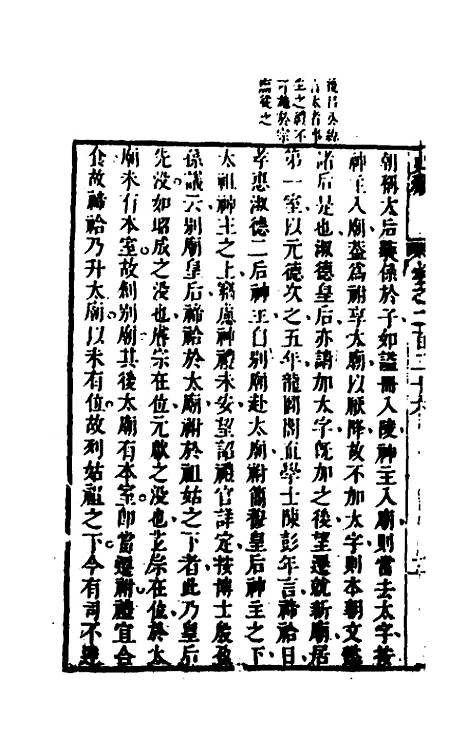 後曰奏
太者事
生之禮不
可施於宗
廟從之
卷之二百三十六
朝稱太后義係於子如謚冊入陵神主入廟則當去太字蓋
神主入廟蓋爲祔享太廟以厭降故不加太字則本朝文懿
諸后是也淑德皇后亦請加太字旣加之後望遷就新廟居
第一室以元德次之五年龍圖閣直學士陳彭年言禘祫日
孝惠淑德二后神主自別廟赴太廟祔簡穆皇后神主之下
太祖神主之上竊慮神禮未安望詔禮官詳定按博士殷盈
孫議云別廟皇后禘祫於太廟祔於祖姑之下者此乃皇后
先没如昭成之没也睿宗在位元獻之没也玄宗在位於太
廟未有本室故創別廟其後太廟有本室卽當遷祔禮宜合
食故禘祫乃升太廟以未有位故列姑祖之下今有司不達